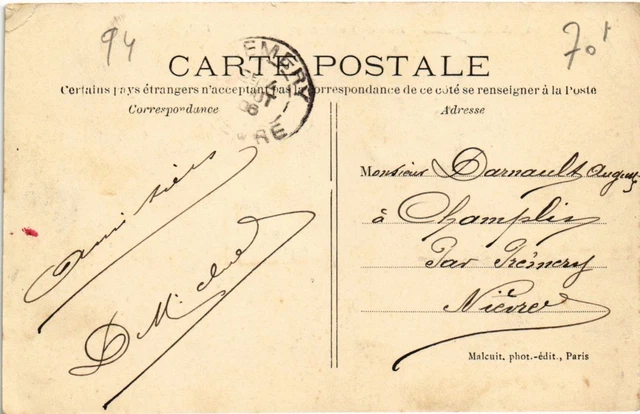 94
70f
CARTE POSTALE
Certains pays étrangers n'acceptant pas la correspondance de ce côté se renseigner à la Poste
Correspondance
Adresse
EMERY
OUT
06
Monsieur Darnault Auguste
à Champlin
Par Prémery
Nièvre
Amitiés
D Michel
Malcuit, phot.-édit., Paris